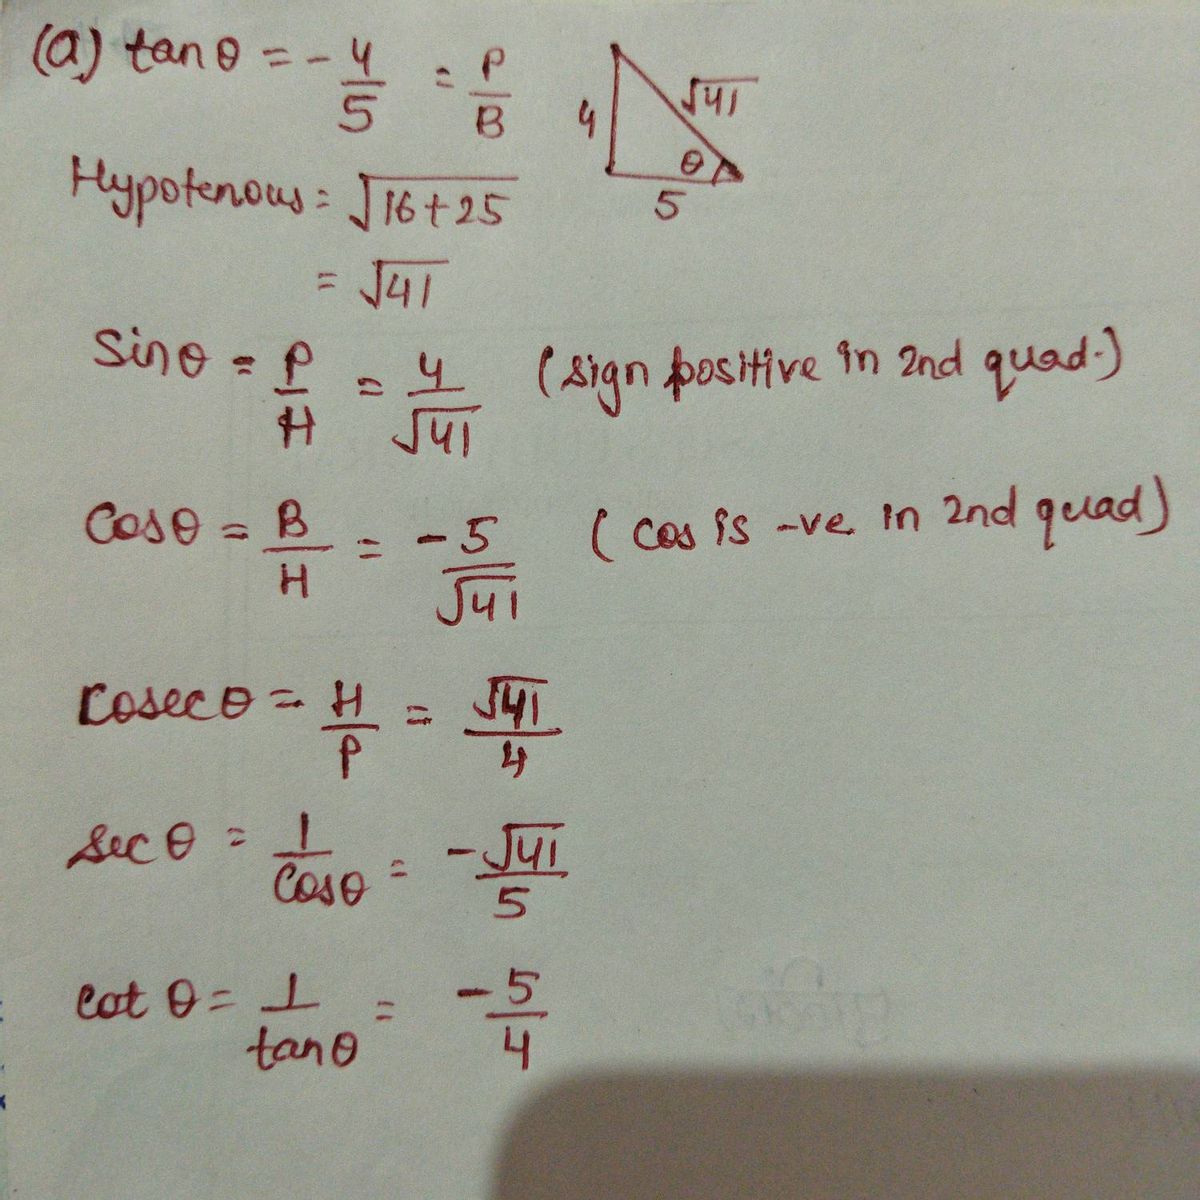 (a) tan θ = - 4/5 = P/B
4 √41 θ 5
Hypotenous = √16+25
= √41
Sin θ = P/H = 4/√41 (sign positive in 2nd quad.)
Cos θ = B/H = -5/√41 (cos is -ve in 2nd quad)
Cosec θ = H/P = √41/4
Sec θ = 1/Cos θ = -√41/5
Cot θ = 1/tan θ = -5/4